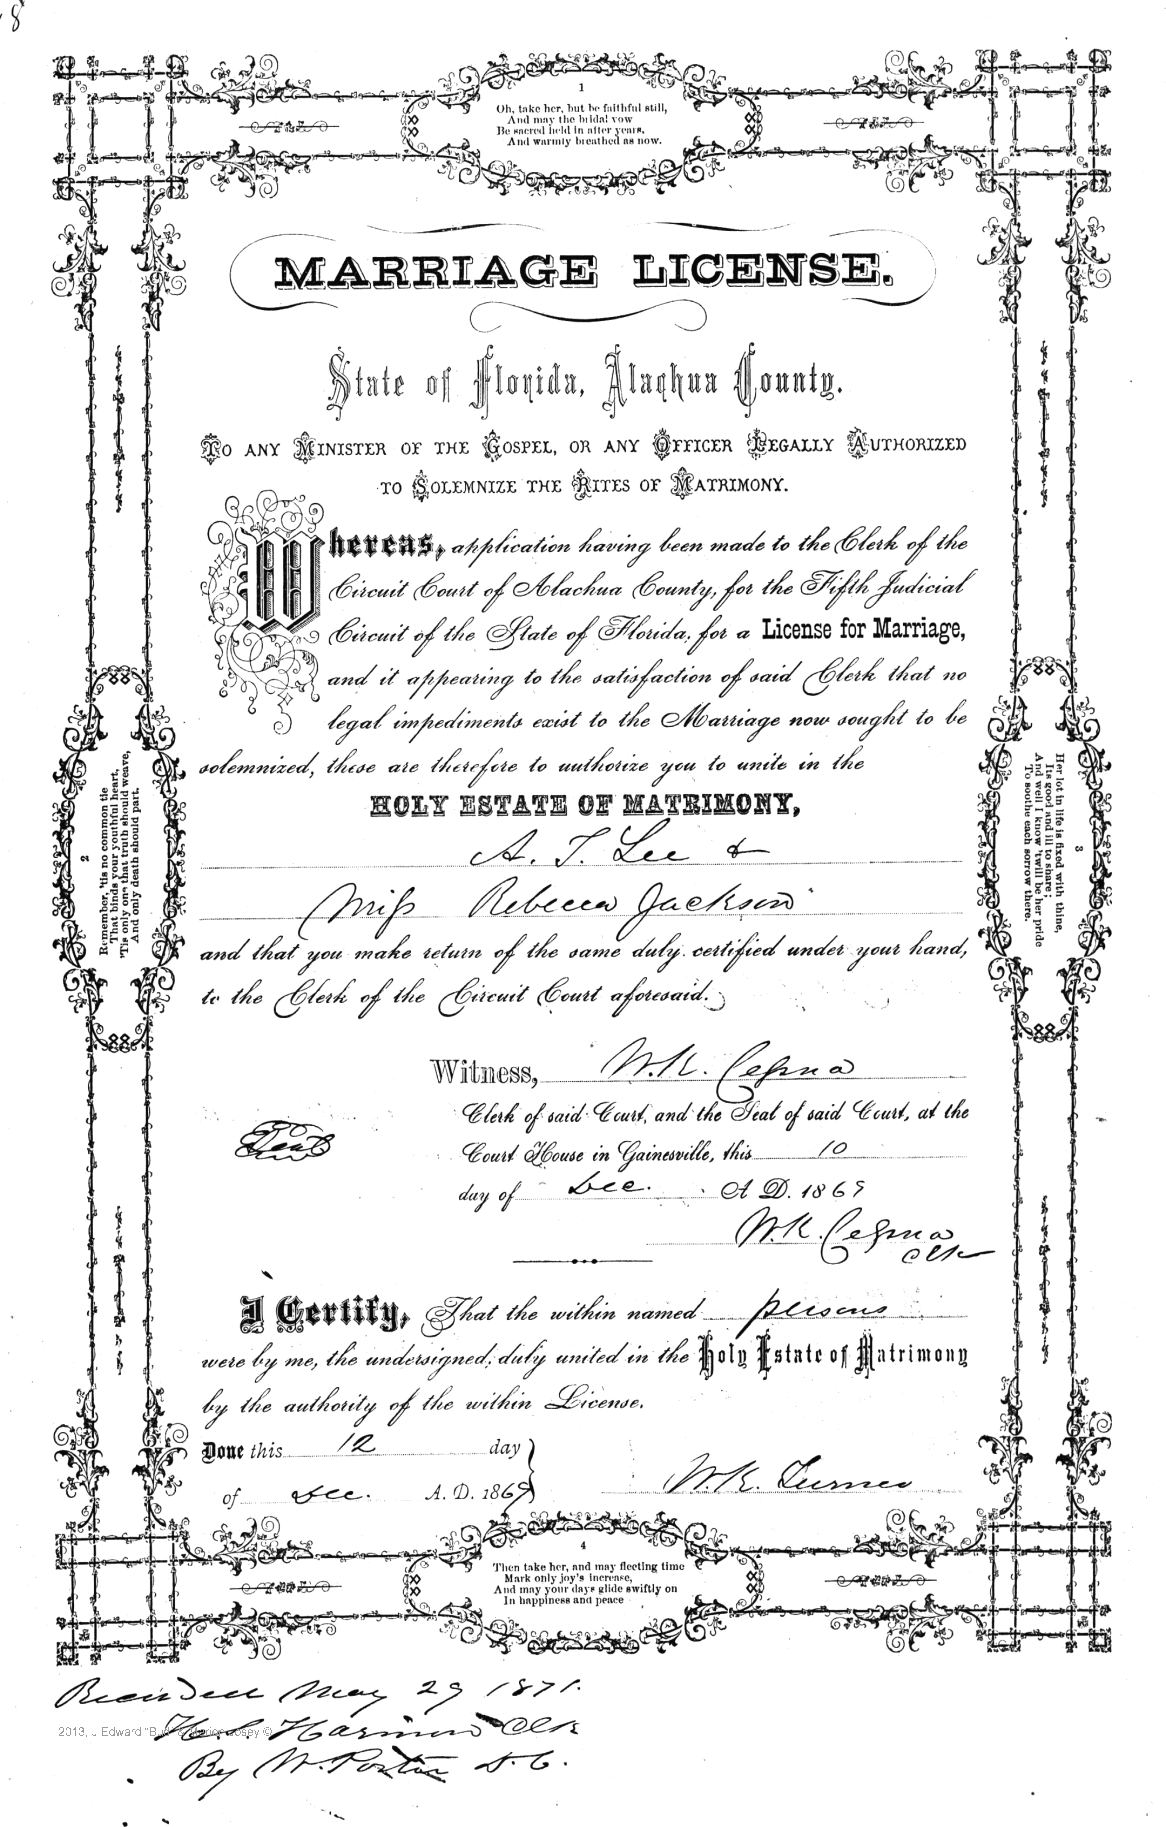 8
1
Oh, take her, but be faithful still,
And may the bridal vow
Be sacred held in after years,
And warmly breathed as now.
MARRIAGE LICENSE.
State of Florida, Alachua County.
To any Minister of the Gospel, or any Officer Legally Authorized
to Solemnize the Rites of Matrimony.
Whereas, application having been made to the Clerk of the
Circuit Court of Alachua County, for the Fifth Judicial
Circuit of the State of Florida, for a License for Marriage,
and it appearing to the satisfaction of said Clerk that no
legal impediments exist to the Marriage now sought to be
solemnized, these are therefore to authorize you to unite in the
HOLY ESTATE OF MATRIMONY,
A. T. Lee &
Miss Rebecca Jackson
and that you make return of the same duly certified under your hand,
to the Clerk of the Circuit Court aforesaid.
2
Remember, 'tis no common tie
That binds your youthful heart,
'Tis only one that truth should weave,
And only death should part.
3
Her lot in life is fixed with thine,
Its good and ill to share;
And well I know 'twill be her pride
To soothe each sorrow there.
Witness, W. K. Cessna
Clerk of said Court, and the Seal of said Court, at the
Seal
Court House in Gainesville, this 10
day of Dec. A D. 1869
W. K. Cessna
Clk
I Certify, That the within named persons
were by me, the undersigned, duly united in the Holy Estate of Matrimony
by the authority of the within License.
Done this 12 day
of Dec. A. D. 1869
W. K. Turner
4
Then take her, and may fleeting time
Mark only joy's increase,
And may your days glide swiftly on
In happiness and peace
Recorded May 29 1871.
Harmon Clk
2013, Edward
By W. Porter D. C.